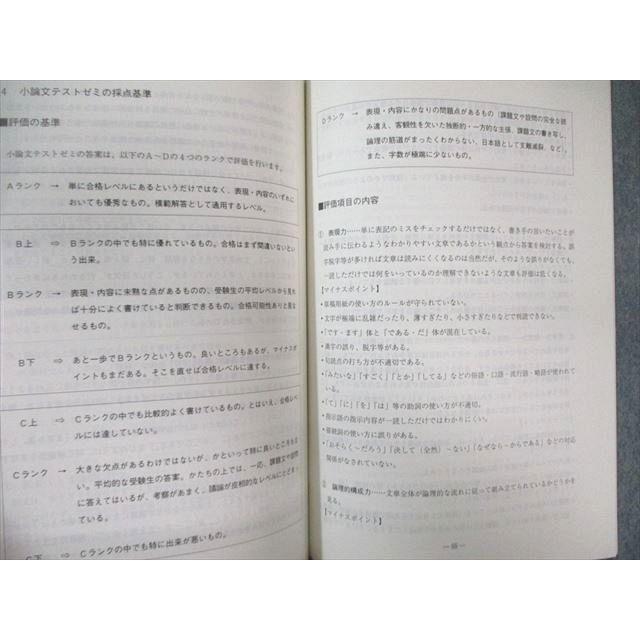 4 小論文テストゼミの採点基準
■評価の基準
小論文テストゼミの答案は、以下のA～Dの4つのランクで評価を行います。
Aランク → 単に合格レベルにあるというだけではなく、表現・内容のいずれに
おいても優秀なもの。模範解答として通用するレベル。
B上 ⇒ Bランクの中でも特に優れているもの。合格はまず間違いないとい
う出来。
Bランク → 表現・内容に未熟な点があるものの、受験生の平均レベルから見れ
ば十分によく書けていると判断できるもの。合格可能性ありと見な
せるもの。
B下 ⇒ あと一歩でBランクというもの。良いところもあるが、マイナスポ
イントもまだある。そこを直せば合格レベルに達する。
C上 ⇒ Cランクの中でも比較的よく書けているもの。とはいえ、合格レベ
ルには達していない。
Cランク → 大きな欠点があるわけではないが、かといって特に良いところもな
い。平均的な受験生の答案。かたちの上では、一応、課題文や設問
に答えてはいるが、考察があまく、議論が皮相的なレベルにとどまっ
ている。
C下 ⇒ Cランクの中でも特に出来が悪いもの。
Dランク → 表現・内容にかなりの問題点があるもの（課題文や設問の完全な読
み違え、客観性を欠いた独断的・一方的な主張、課題文の書き写し、
論理の筋道がまったくわからない、日本語として支離滅裂、など）。
また、字数が極端に少ないもの。
■評価項目の内容
① 表現力……単に表記のミスをチェックするだけではなく、書き手の言いたいことが
読み手に伝わるようなわかりやすい文章であるかという観点から答案を検討する。誤
字脱字等が多ければ文章は読みにくくなるのは当然だが、そのような誤りがなくても、
一読しただけでは何をいっているのか理解できないような文章も評価は低くなる。
【マイナスポイント】
・原稿用紙の使い方のルールが守られていない。
・文字が極端に乱雑だったり、薄すぎたり、小さすぎたりなどで判読できない。
・「です・ます」体と「である・だ」体が混在している。
・漢字の誤り、脱字等がある。
・句読点の打ち方が不適切である。
・「みたいな」「すごく」「とか」「してる」などの俗語・口語・流行語・略語が使われて
いる。
・「て」「に」「を」「は」等の助詞の使い方が不適切。
・指示語の指示内容が一読しただけではわかりにくい。
・接続詞の使い方に誤りがある。
・「おそらく～だろう」「決して（全然）～ない」「なぜなら～からである」などの対応
関係がなされていない。
② 論理的構成力……文章全体が論理的な流れに従って組み立てられているかどうかを
見る。
【マイナスポイント】